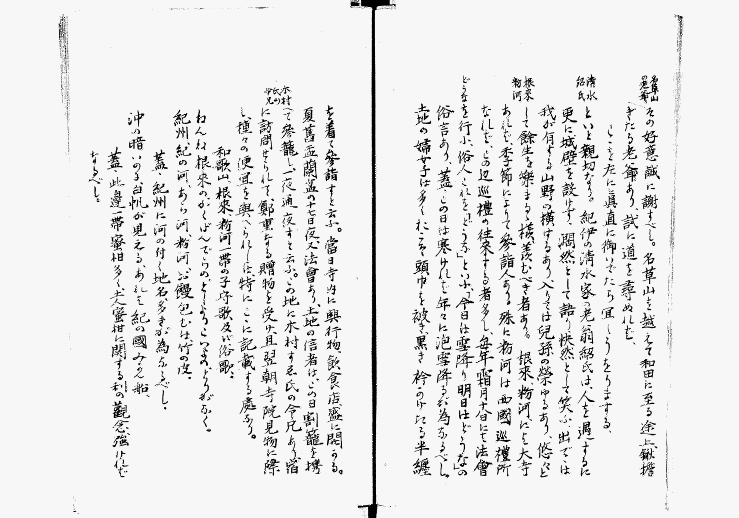 名草山
の老爺
その好意誠に謝すべし。名草山を越えて和田に至る途上鍬擔
ぎたる老爺あり、試に道を尋ぬれば、
こゝを左に眞直に御いでたら宜しうござりまする、
清水
紹氏
といと親切なり。紀伊の清水家の老翁紹氏は、人を遇するに
更に城壁を設けず、濶然として語り快然として笑ふ、出でては
我が有する山野の横するあり、入りては兒孫の榮ゆるあり、悠々と
根來
粉河
して餘生を樂まる、羨むべき者ある。根來、粉河にも大寺
あれば、季節によりて參詣人あり、殊に粉河は西國巡禮所
なれば、この邊巡禮の往來する者多し、毎年霜月大昔にて法會
どうなを行ふ、俗人これをどうなといふ、今日は雪降り明日はどうなの
俗言あり、蓋しこの日は寒けれど年々に泡雪降るが為なるべし。
土地の婦女子は多くおこそ頭巾を被き黒き衿のかけたる半纏
を着て參詣すと云ふ。當日寺内に興行物飲食店盛に開かる。
夏舊盂蘭盆の十七日夜又法會あり、土地の信者はこの日割籠を携
木村
氏の
令兄
へて參籠し一夜通夜すと云ふ。この地に木村すゑ氏の令兄あり、皆
に訪問せられて、鄭重なる贈物を受け、且翌朝寺院見物に際
し、種々の便宜を與へられしは、特にここに記載する處なり。
和歌山、根來、粉河一帯の子守歌及び俗歌。
ねんね根來のかくばんてらのとしよりこいよのどりがなく。
紀州紀の河、あら河、粉河、お饅包むは竹の皮。
蓋し紀州に河の付く地名多きが為なるべし。
沖の暗いのに白帆が見える、あれは紀の國みかん船、
蓋し此邊一帯蜜柑多く、又人蜜柑に関する利の觀念強ければ
なるべし。